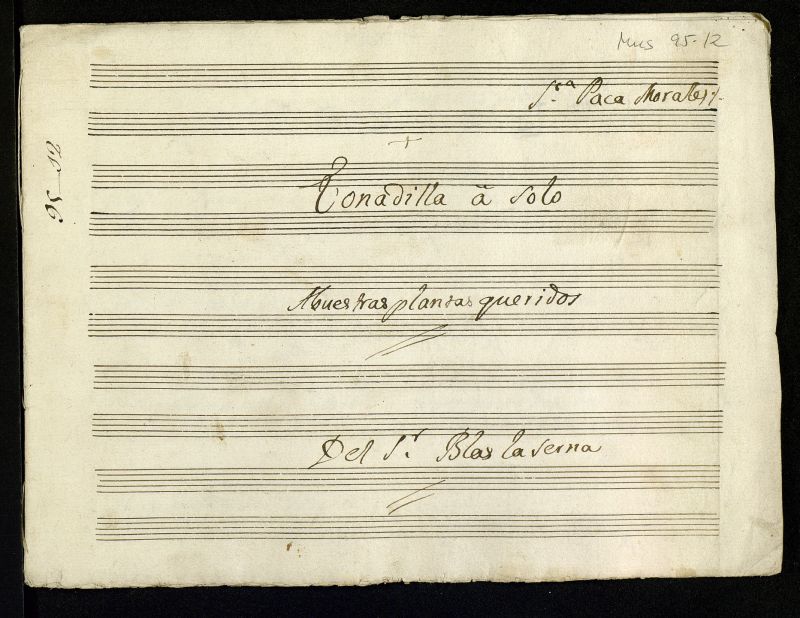 Mus 95-12
S.ra Paca Morales
95-12
Tonadilla â Solo
Avuestras plantas queridos
Del S.r Blas la serna